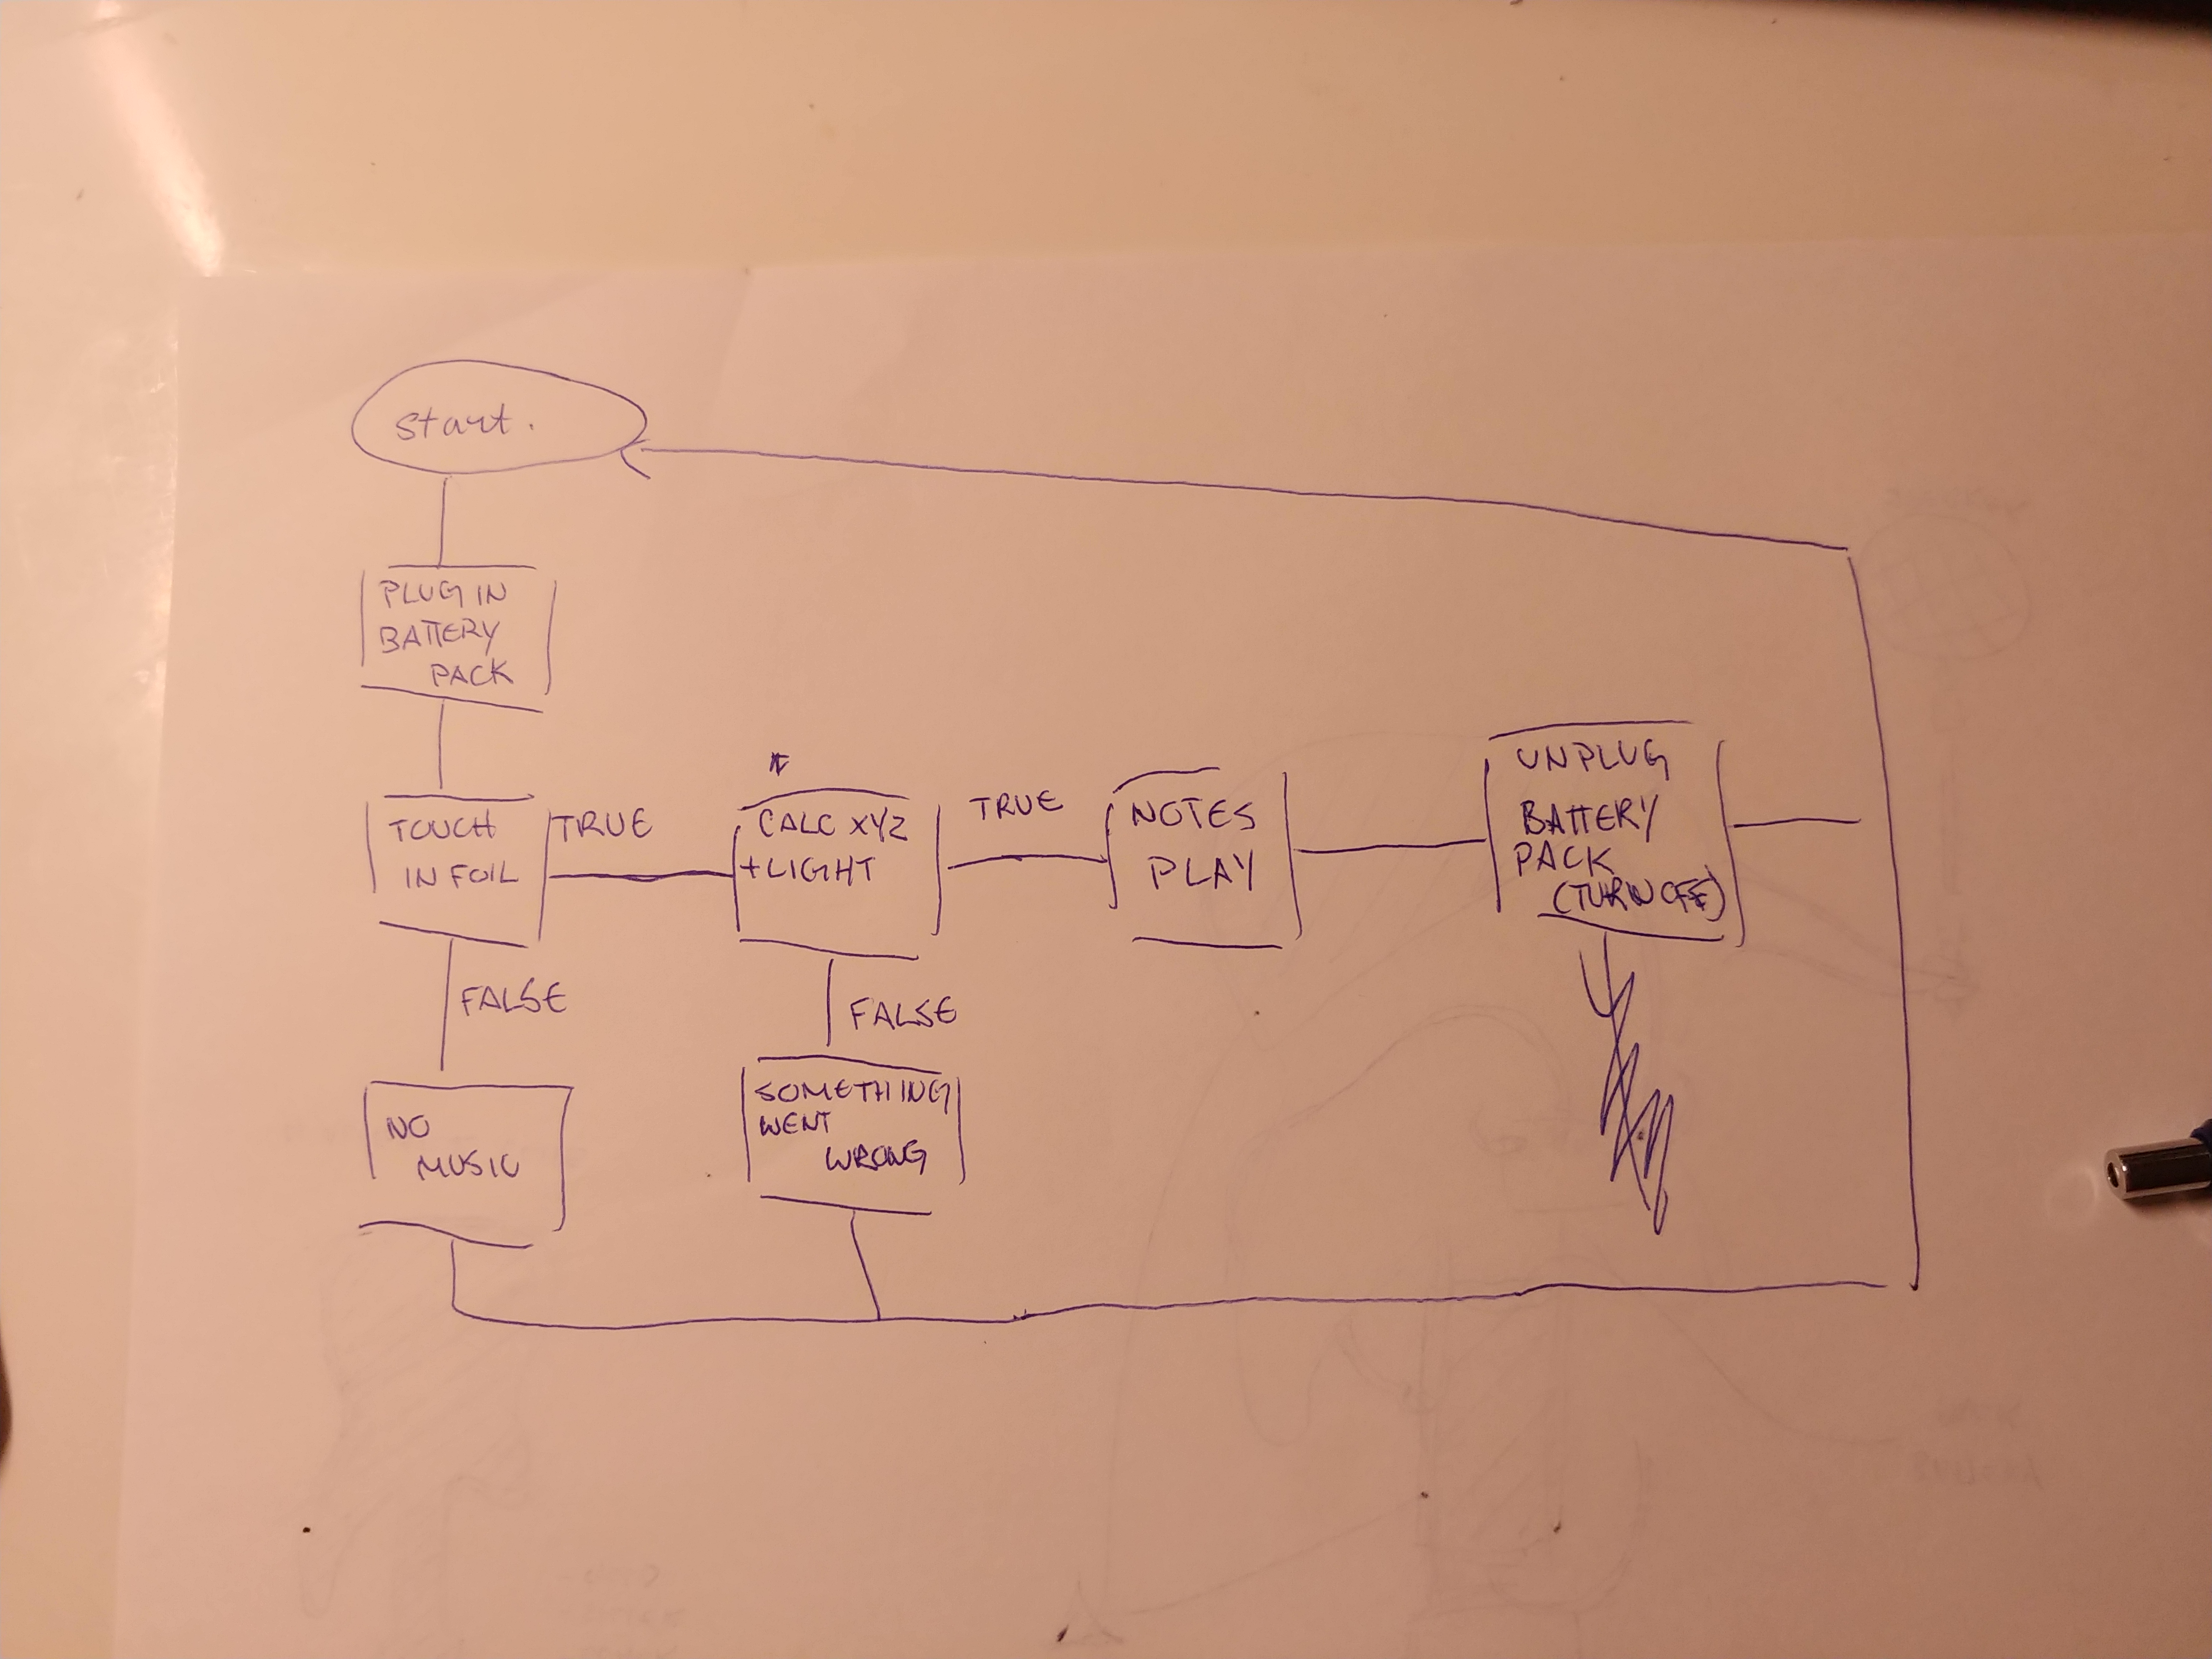 Start.
PLUG IN
BATTERY
PACK
TOUCH
IN FOIL
TRUE
*
CALC XYZ
+ LIGHT
TRUE
NOTES
PLAY
UNPLUG
BATTERY
PACK
(TURN OFF)
FALSE
FALSE
NO
MUSIC
SOMETHING
WENT
WRONG